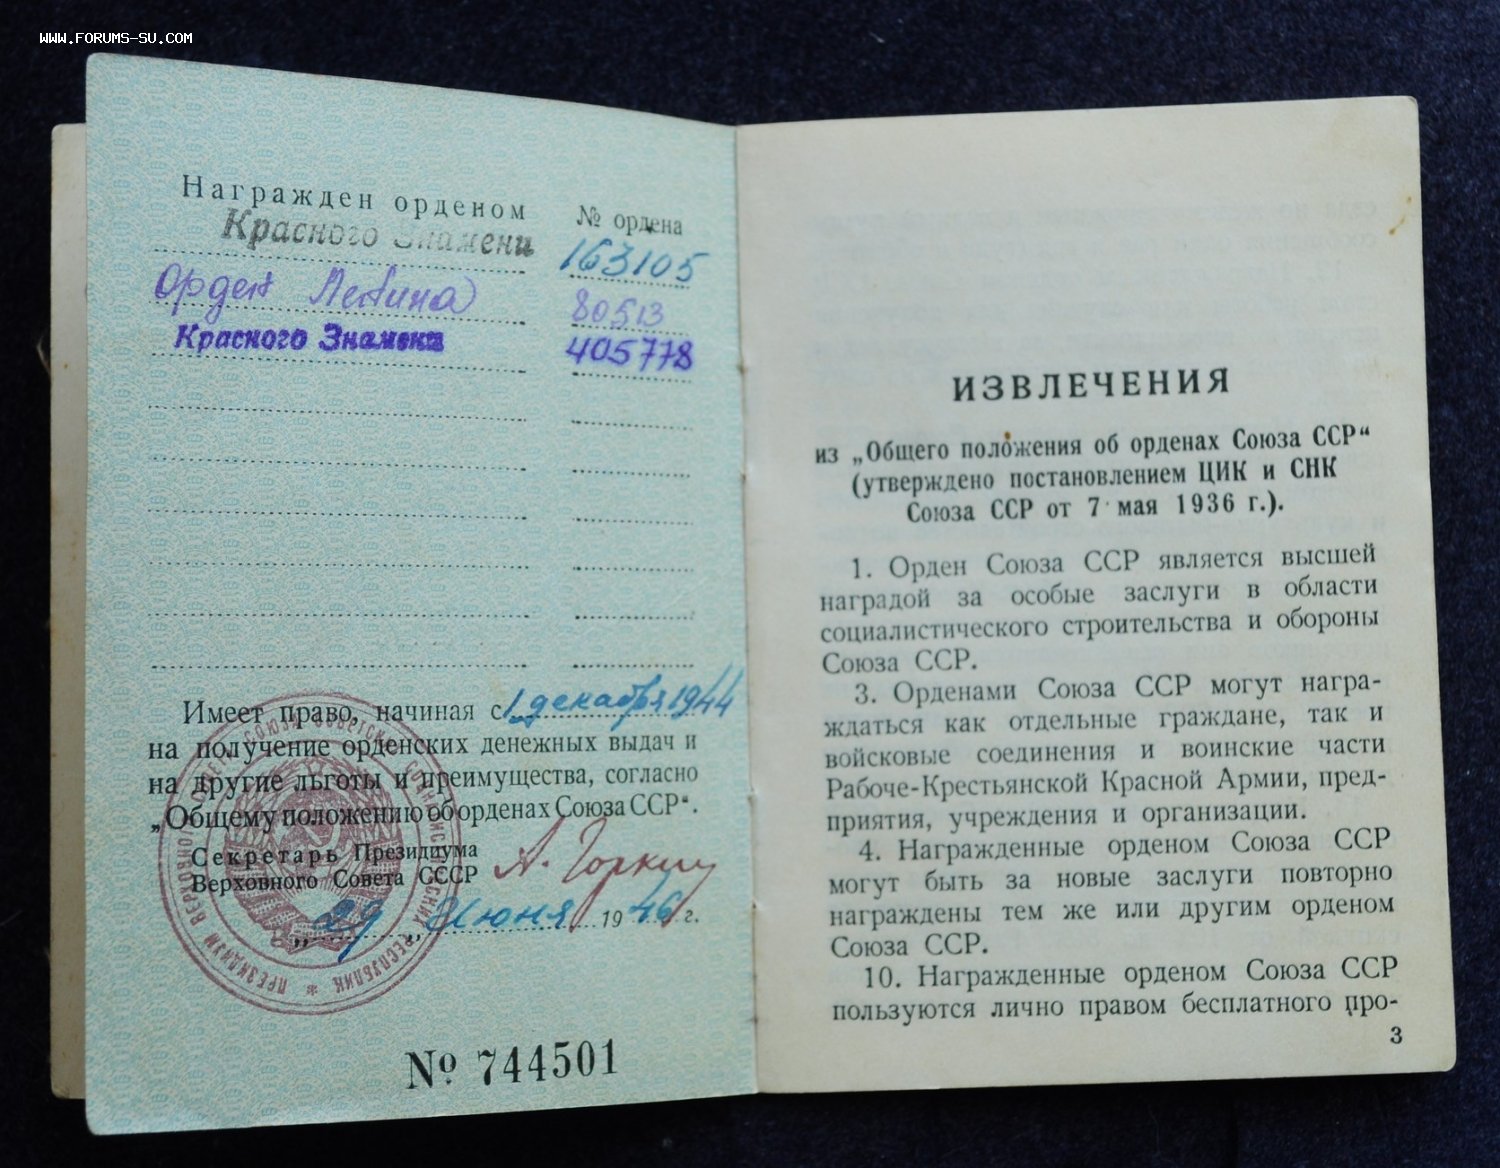 www.forums-su.com
Награжден орденом
№ ордена
Красного Знамени
163105
Орден Ленина
80513
Красного Знамени
405778
Имеет право, начиная с 1 декабря 1944
на получение орденских денежных выдач и
на другие льготы и преимущества, согласно
„Общему положению об орденах Союза ССР“.
Секретарь Президиума
Верховного Совета СССР
А. Горкин
„29„ Июня 1946 г.
№ 744501
ИЗВЛЕЧЕНИЯ
из „Общего положения об орденах Союза ССР“
(утверждено постановлением ЦИК и СНК
Союза ССР от 7 мая 1936 г.).
1. Орден Союза ССР является высшей
наградой за особые заслуги в области
социалистического строительства и обороны
Союза ССР.
3. Орденами Союза ССР могут награ-
ждаться как отдельные граждане, так и
войсковые соединения и воинские части
Рабоче-Крестьянской Красной Армии, пред-
приятия, учреждения и организации.
4. Награжденные орденом Союза ССР
могут быть за новые заслуги повторно
награждены тем же или другим орденом
Союза ССР.
10. Награжденные орденом Союза ССР
пользуются лично правом бесплатного про-
3